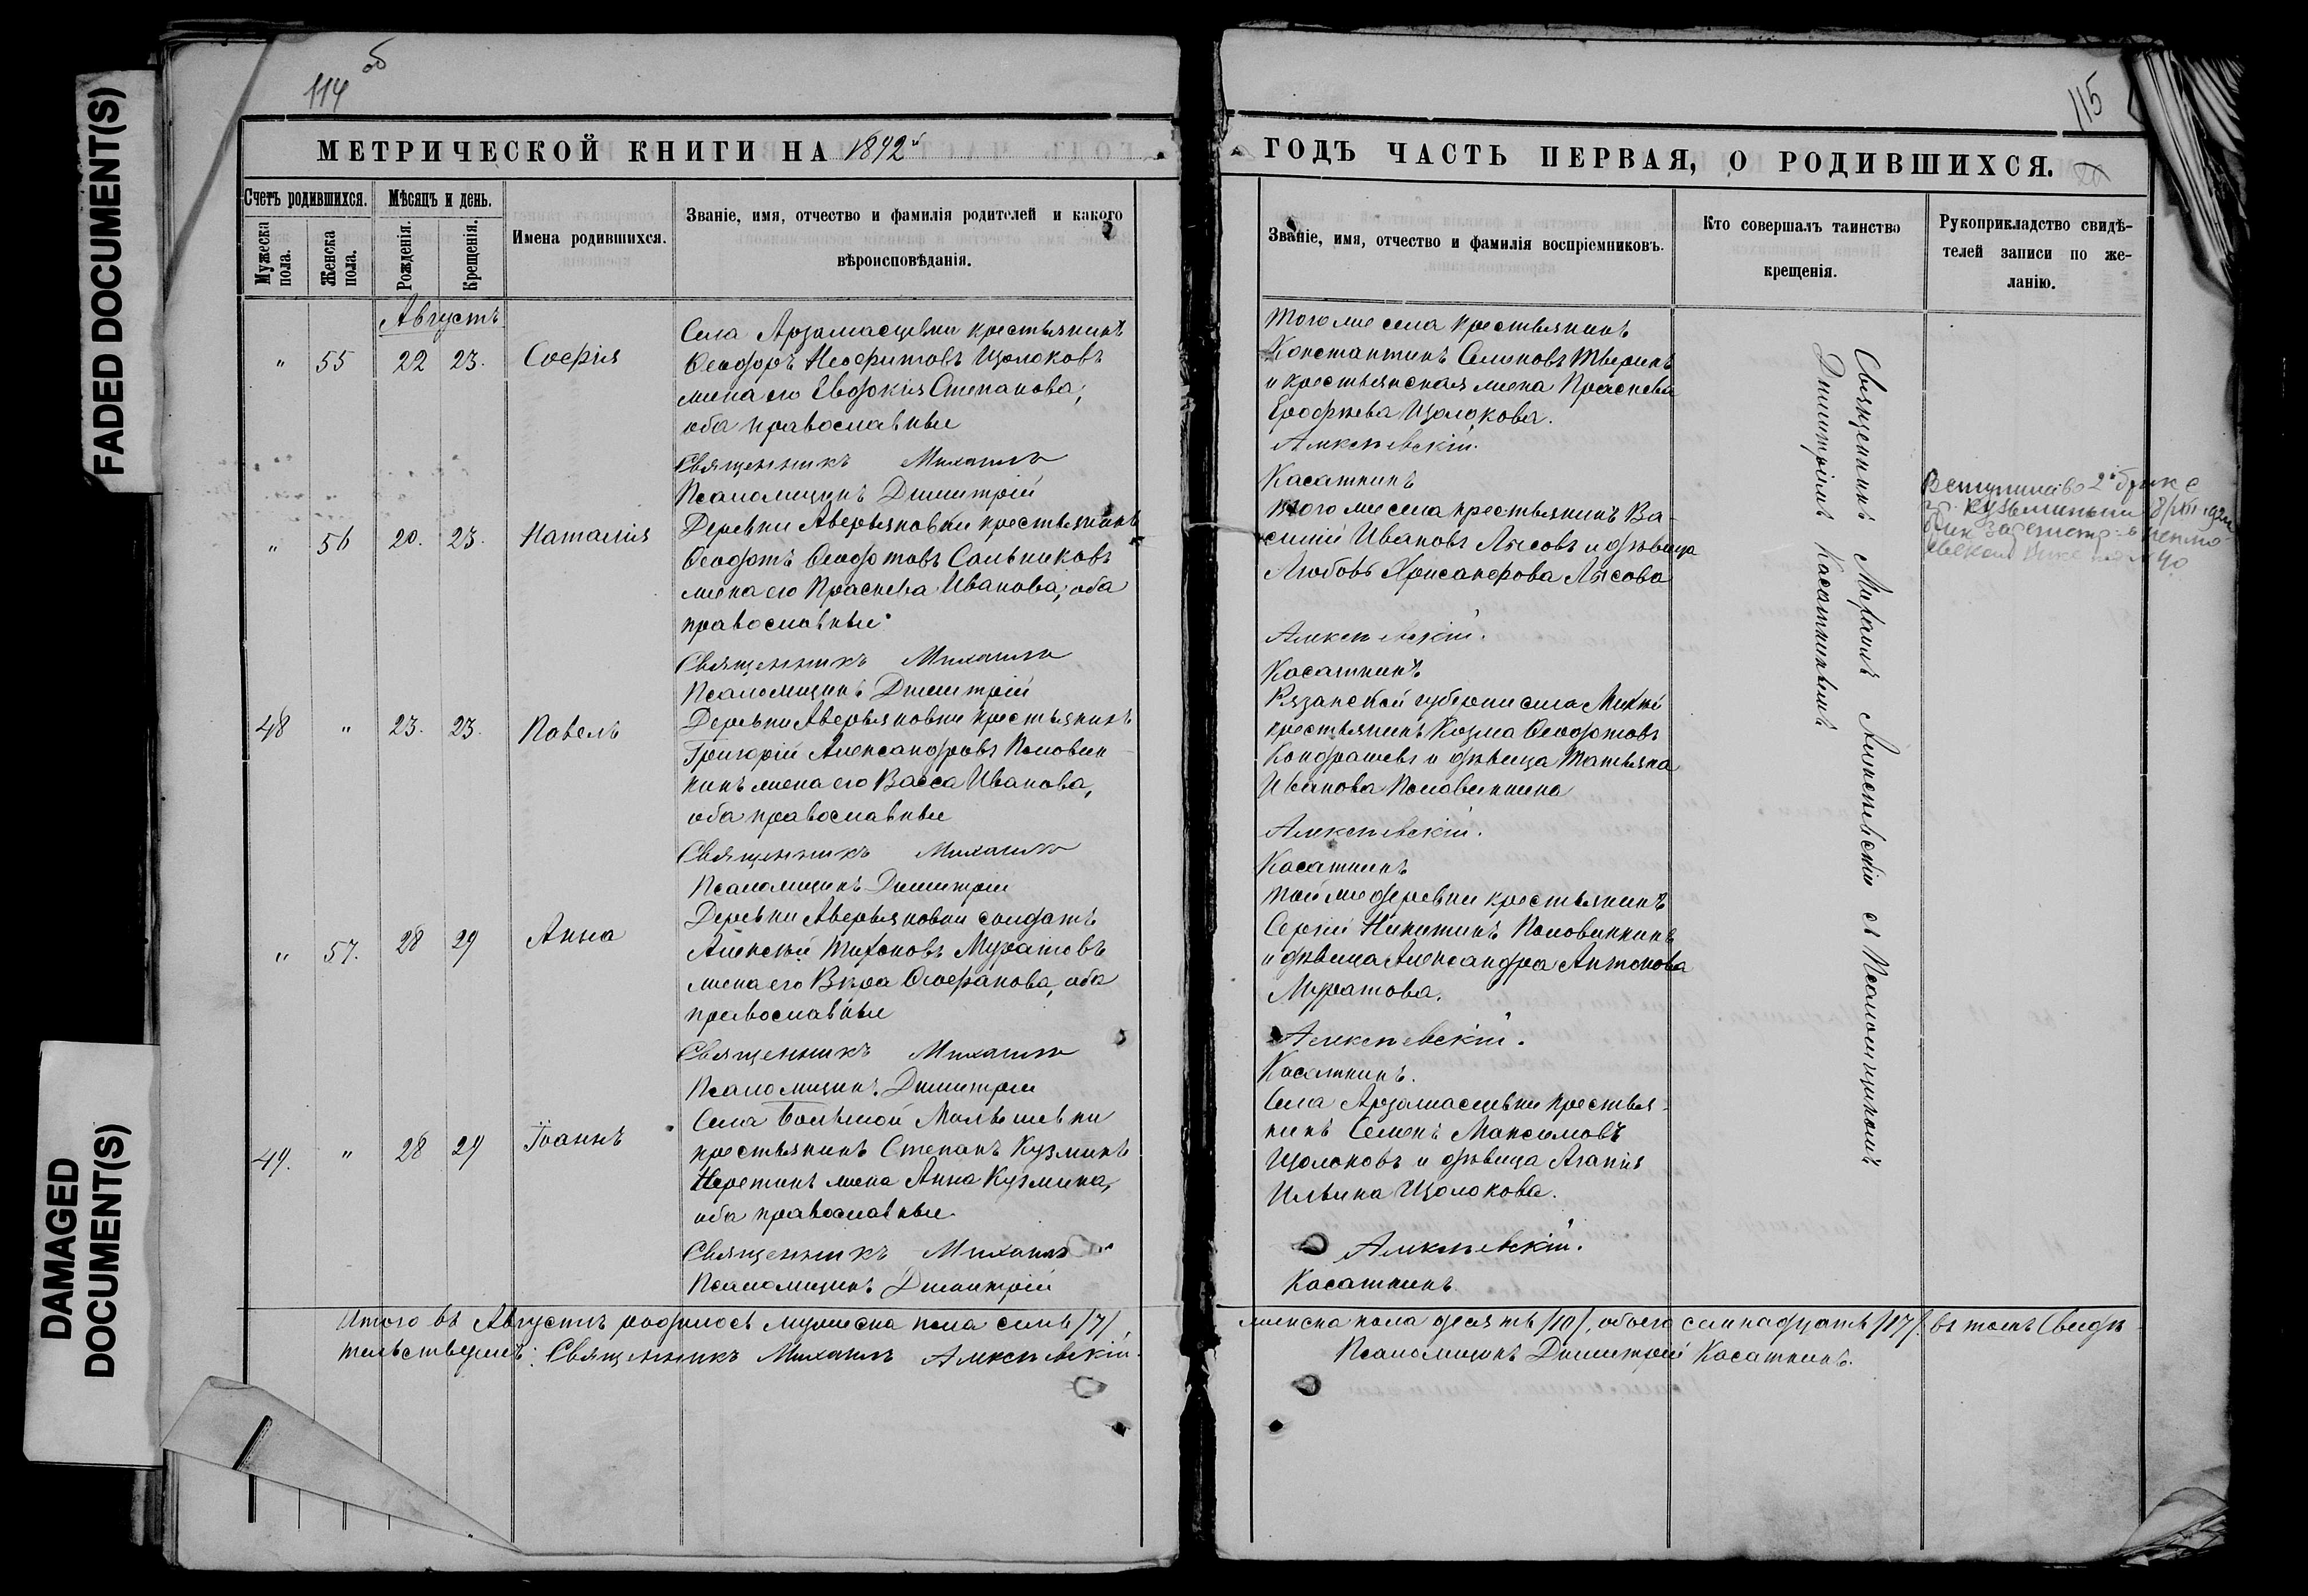 FADED DOCUMENT(S)
DAMAGED
DOCUMENT(S)
114 об
МЕТРИЧЕСКОЙ КНИГИ НА 1892й
Счетъ родившихся.
Мѣсяцъ и день.
Мужеска пола.
Женска пола.
Рожденія.
Крещенія.
Имена родившихся.
Званіе, имя, отчество и фамилія родителей и какого
вѣроисповѣданія.
Августъ
" 55 22 23. Софія
Села Арзамасцевки крестьянинъ
Ѳеодоръ Неофитовъ Щолоковъ
жена его Евдокія Степанова,
оба православные
Священникъ Михаилъ
Псаломщикъ Димитрій
" 56 20. 23. Наталія
Деревни Аверьяновки крестьянинъ
Ѳеодотъ Ѳеодотовъ Сальниковъ
жена его Праскева Иванова, оба
православные
Священникъ Михаилъ
Псаломщикъ Димитрій
48 " 23. 23. Павелъ
Деревни Аверьяновки крестьянинъ
Григорій Александровъ Половин
кинъ жена его Васса Иванова,
оба православные
Священникъ Михаилъ
Псаломщикъ Димитрій
" 57. 28 29 Анна
Деревни Аверьяновки солдатъ
Алексѣй Тихоновъ Муратовъ
жена его Вѣра Ѳеофанова, оба
православные
Священникъ Михаилъ
Псаломщикъ Димитрій
49. " 28 29 Іоаннъ
Села Большой Малышевки
крестьянинъ Степанъ Кузминъ
жена Анна Кузмина,
оба православные
Священникъ Михаилъ
Псаломщикъ Димитрій
Итого въ Августѣ родилось мужеска пола семь /7/,
тельствуемъ: Священникъ Михаилъ Алексѣевскій.
115
ГОДЪ ЧАСТЬ ПЕРВАЯ, О РОДИВШИХСЯ.
Званіе, имя, отчество и фамилія воспріемниковъ.
Кто совершалъ таинство
крещенія.
Рукоприкладство свидѣ-
телей записи по же-
ланію.
Того же села крестьянинъ
Константинъ Семеновъ Тверинъ
и крестьянская жена Праскева
Ерофѣева Щолокова.
Алексѣевскій.
Касаткинъ
Того же села крестьянинъ Ва-
силій Ивановъ Лысовъ и дѣвица
Любовь Хрисанфова Лысова
Алексѣевскій.
Касаткинъ
Рязанской губерніи села
крестьянинъ Козма Ѳеодотовъ
Кондрашевъ и дѣвица Татьяна
Иванова Половинкина
Алексѣевскій.
Касаткинъ
Той же деревни крестьянинъ
Сергій Никитинъ Половинкинъ
и дѣвица Александра Антонова
Муратова.
Алексѣевскій.
Касаткинъ.
Села Арзамасцевки крестья-
нинъ Семенъ Максимовъ
Щолоковъ и дѣвица Агапія
Ильина Щолокова.
Алексѣевскій.
Касаткинъ.
Священникъ Михаилъ Алексѣевскій съ Псаломщикомъ
Димитріемъ Касаткинымъ
Вступил во 2й брак с
Кузьминым
женска пола десять /10/, обоего семнадцать /17/ въ томъ Свидѣ
Псаломщикъ Димитрій Касаткинъ.